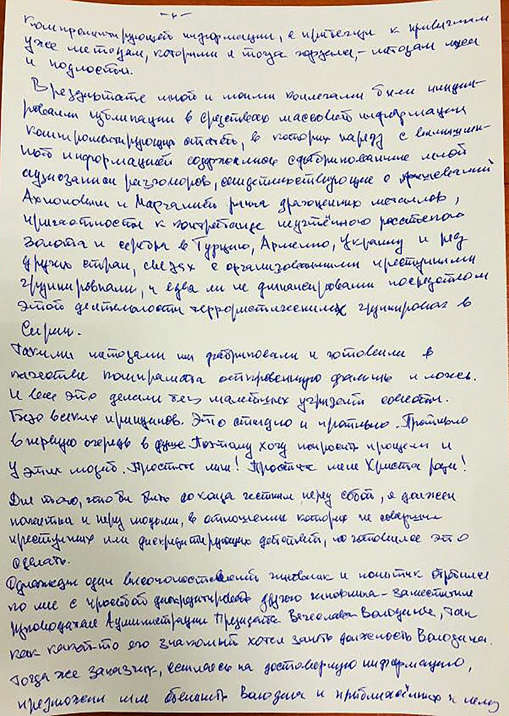 -4-
компрометирующей информации, я прибегал к привычным
уже методам, которыми я тогда гордился, - методам лжи
и подлости.
В результате мной и моими коллегами были иниции-
рованы публикации в средствах массовой информации
компрометирующих статей, в которых наряду с вымышлен-
ной информацией содержались сфабрикованные мной
аудиозаписи разговоров, свидетельствующие о
и рынка драгоценных металлов,
причастности к контрабанде неучтённого российского
золота и серебра в Турцию, Армению, Украину и ряд
других стран, связях с организованными преступными
группировками, и едва ли не финансировании посредством
этой деятельности террористических группировок в
Сирии.
Такими методами мы фабриковали и готовили в
качестве компромата откровенную фальшь и ложь.
И все это делали без малейших угрызений совести.
Безо всяких принципов. Это стыдно и противно. Противно
в первую очередь в душе. Поэтому хочу попросить прощения и
у этих людей. Простите меня! Простите меня Христа ради!
Для того, чтобы быть до конца честным перед собой, я должен
покаяться и перед людьми, в отношении которых не совершил
преступных или дискредитирующих действий, но готовился это
сделать.
Однажды один высокопоставленный чиновник и политик обратился
ко мне с просьбой дискредитировать другого чиновника - заместителя
руководителя Администрации Президента Вячеслава Володина, так
как какой-то его знакомый хотел занять должность Володина.
Тогда же заказчик, ссылаясь на достоверную информацию,
предложил мне обвинить Володина и приближённых к нему